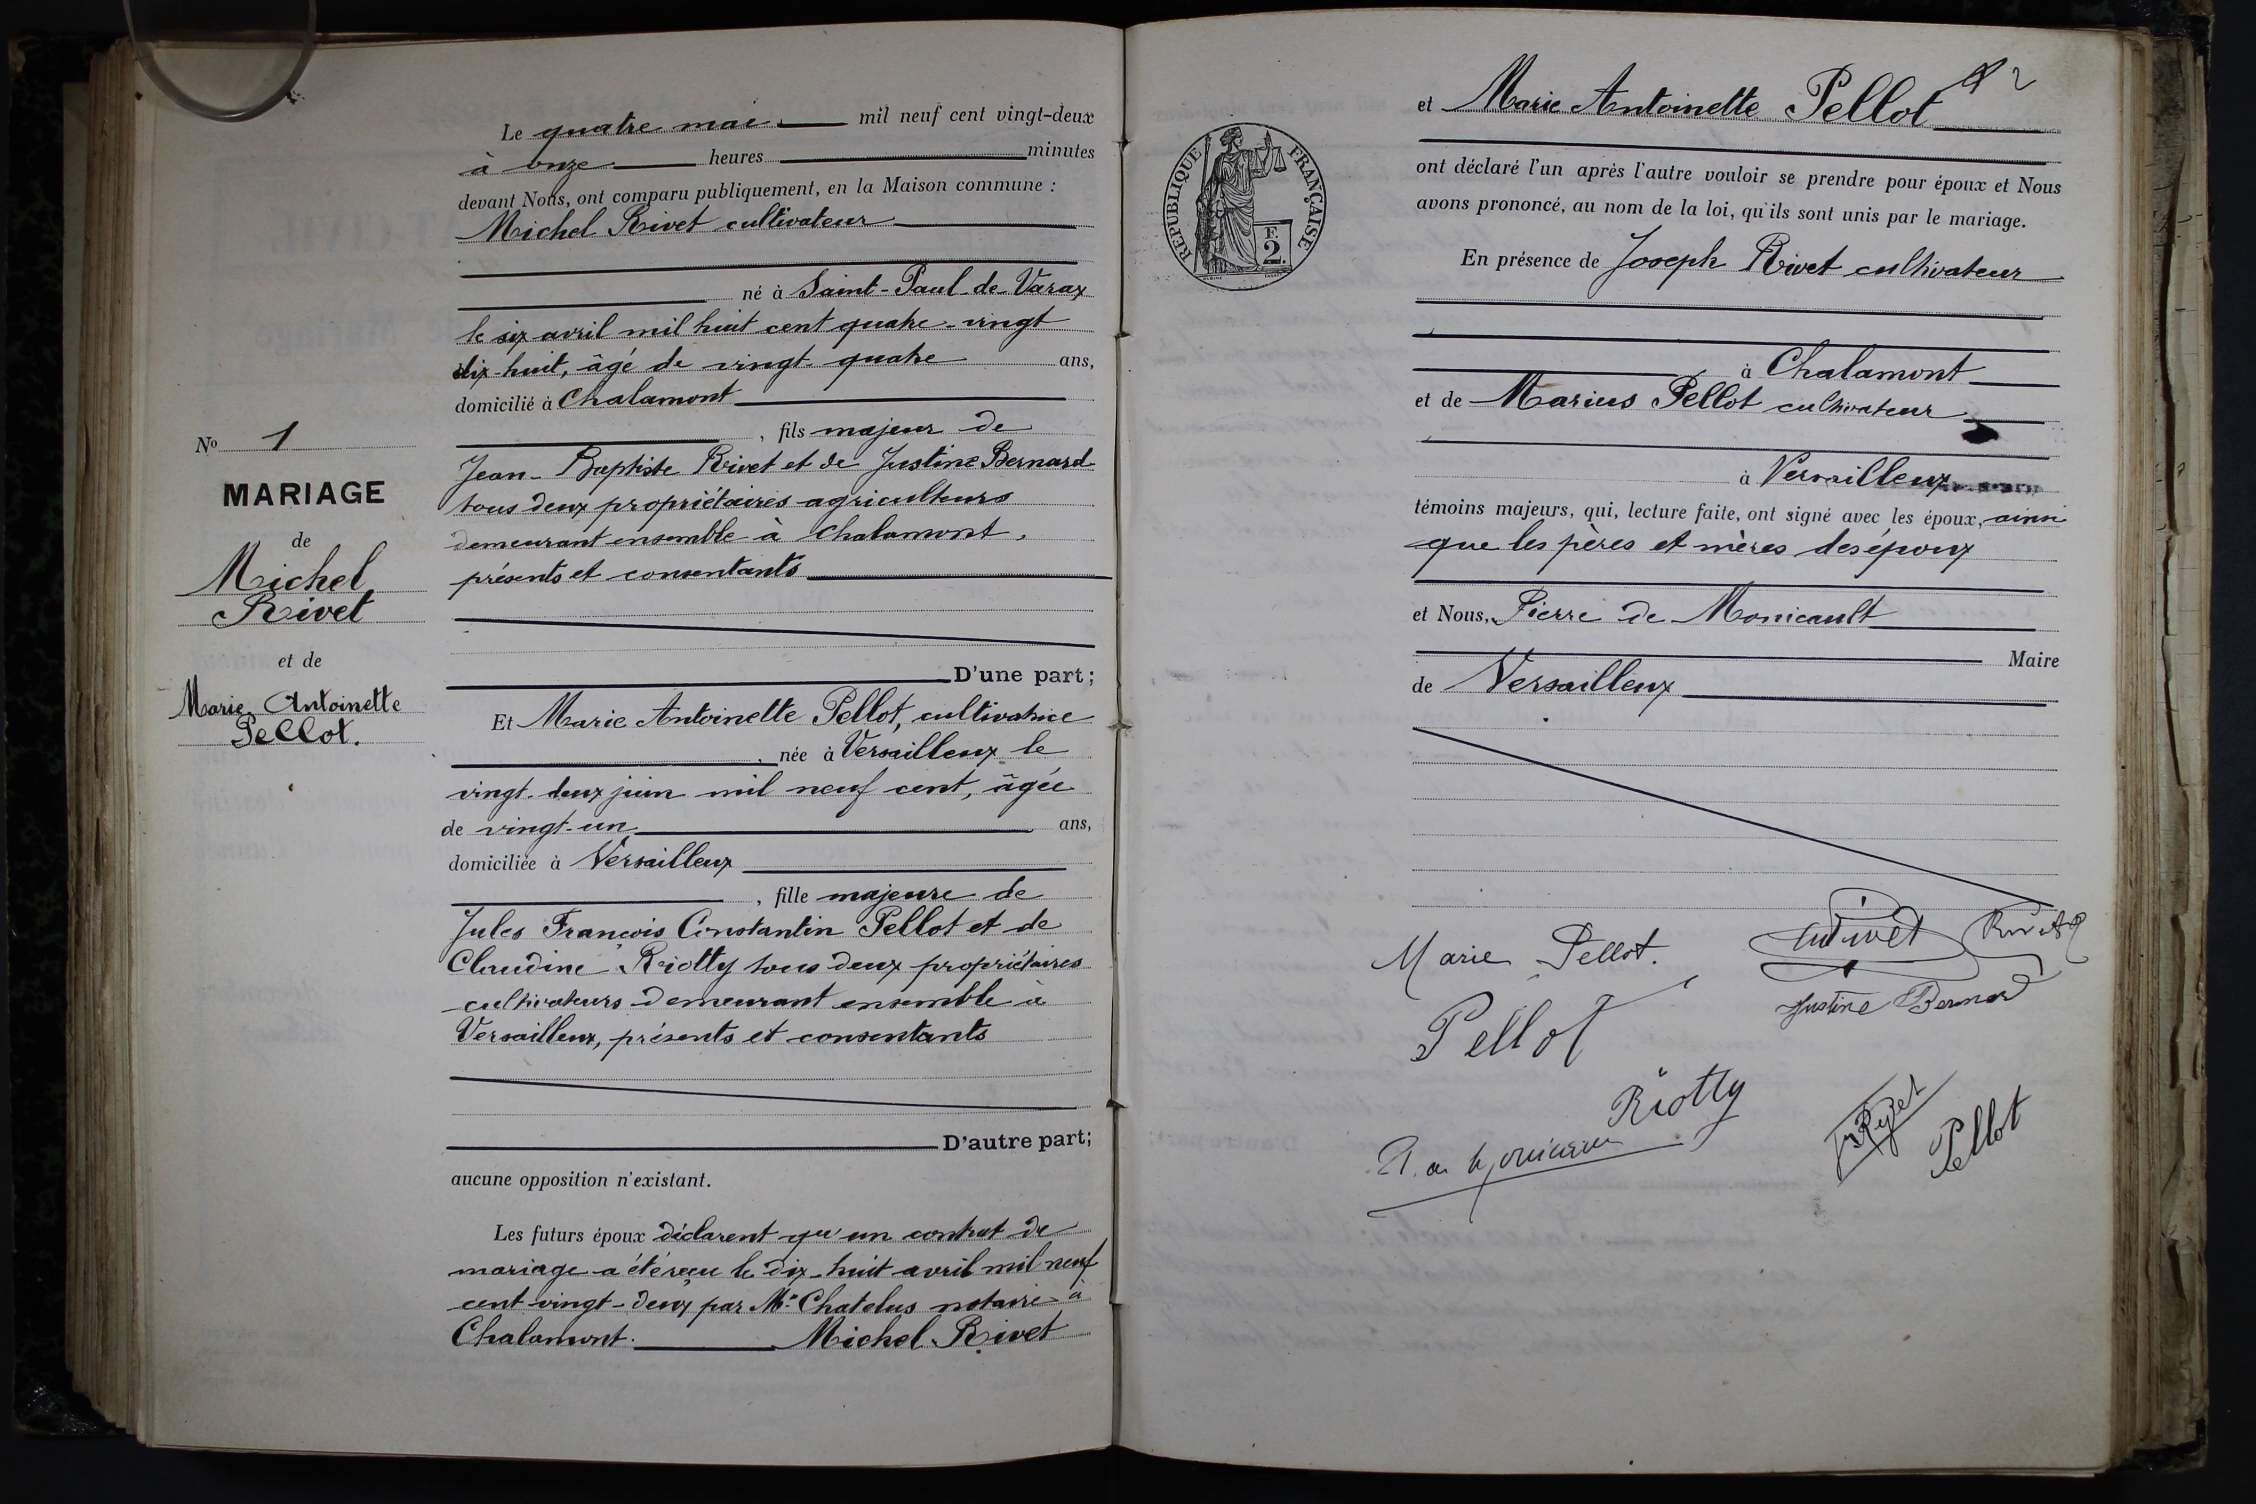 Le quatre mai mil neuf cent vingt-deux
à onze heures minutes
devant Nous, ont comparu publiquement, en la Maison commune :
Michel Rivet cultivateur
né à Saint-Paul-de-Varax
le six avril mil huit cent quatre-vingt
dix-huit, âgé de vingt-quatre ans,
domicilié à Chalamont
, fils majeur de
Jean-Baptiste Rivet et de Justine Bernard
tous deux propriétaires agriculteurs
demeurant ensemble à Chalamont,
présents et consentants
D'une part;
Nº 1
MARIAGE
de
Michel
Rivet
et de
Marie Antoinette
Pellot.
Et Marie Antoinette Pellot, cultivatrice
, née à Versailleux le
vingt-deux juin mil neuf cent, âgée
de vingt-un ans,
domiciliée à Versailleux
, fille majeure de
Jules François Constantin Pellot et de
Claudine Riotty tous deux propriétaires
cultivateurs demeurant ensemble à
Versailleux, présents et consentants
D'autre part;
aucune opposition n'existant.
Les futurs époux déclarent qu'un contrat de
mariage a été reçu le dix-huit avril mil neuf
cent vingt-deux par Me Chatelus notaire à
Chalamont. Michel Rivet
2
et Marie Antoinette Pellot
RÉPUBLIQUE FRANÇAISE
F.
2.
ont déclaré l'un après l'autre vouloir se prendre pour époux et Nous
avons prononcé, au nom de la loi, qu'ils sont unis par le mariage.
En présence de Joseph Rivet cultivateur
à Chalamont
et de Marius Pellot cultivateur
à Versailleux
témoins majeurs, qui, lecture faite, ont signé avec les époux, ainsi
que les pères et mères des époux
et Nous, Pierre de Monicault
Maire
de Versailleux
Marie Pellot.
Justine Bernard
Pellot
Riotty
Pellot